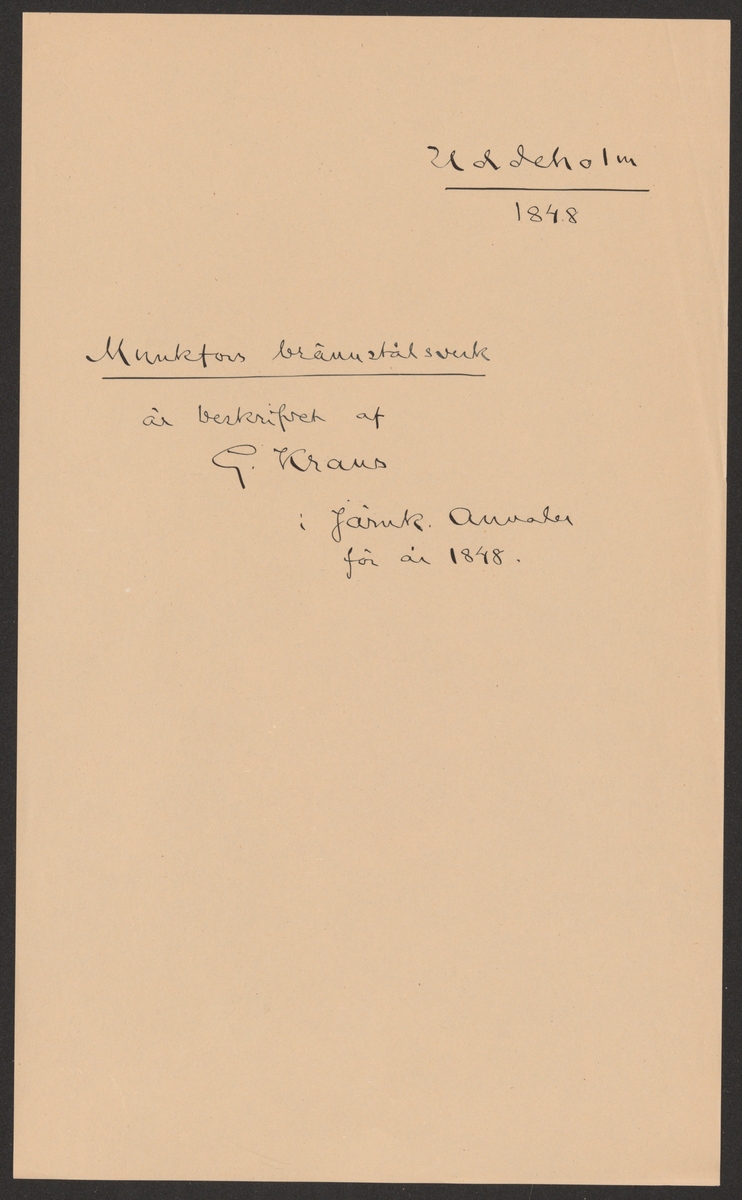 Uddeholm
1848
Munkfors brännstålsverk
är beskrifvet af
G. Kraus
i Järnk. Annaler
för år 1848.